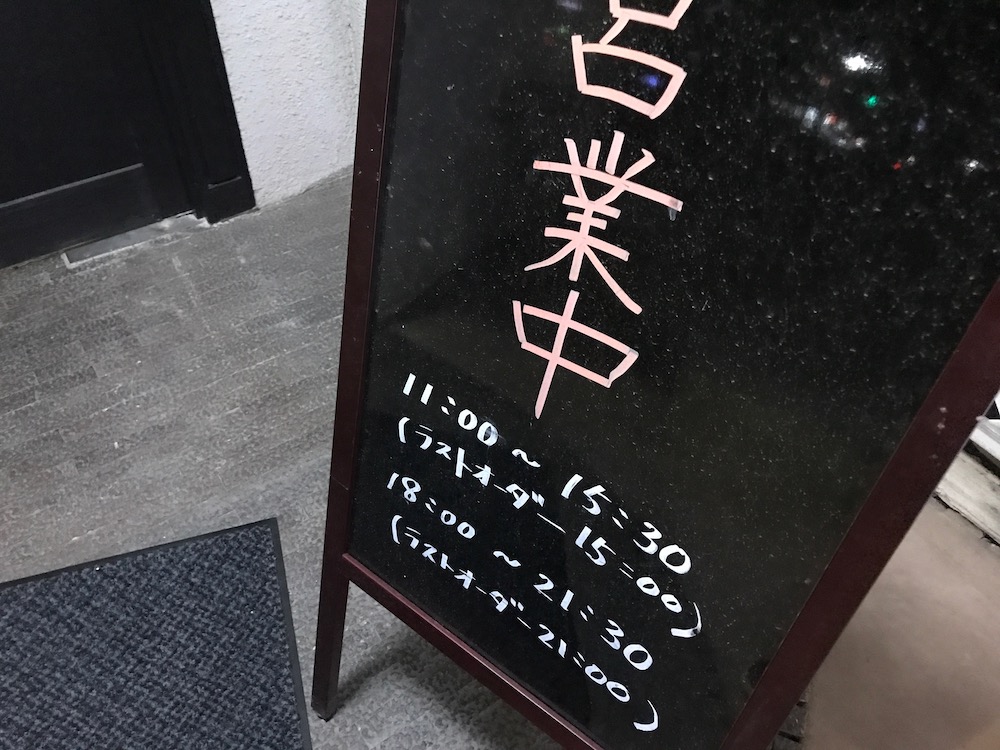 営業中
11:00 ~ 15:30
(ラストオーダー 15:00)
18:00 ~ 21:30
(ラストオーダー 21:00)